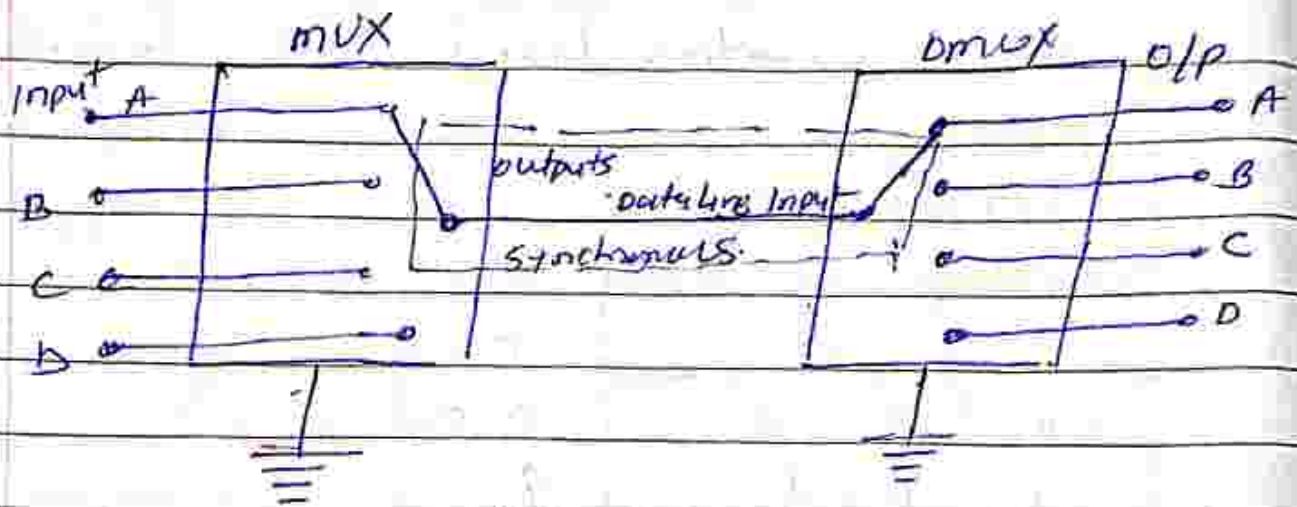 MUX
DMUX O/P
Input A
A
outputs
B
B
Data line Input
Synchronous.
C
C
D
D